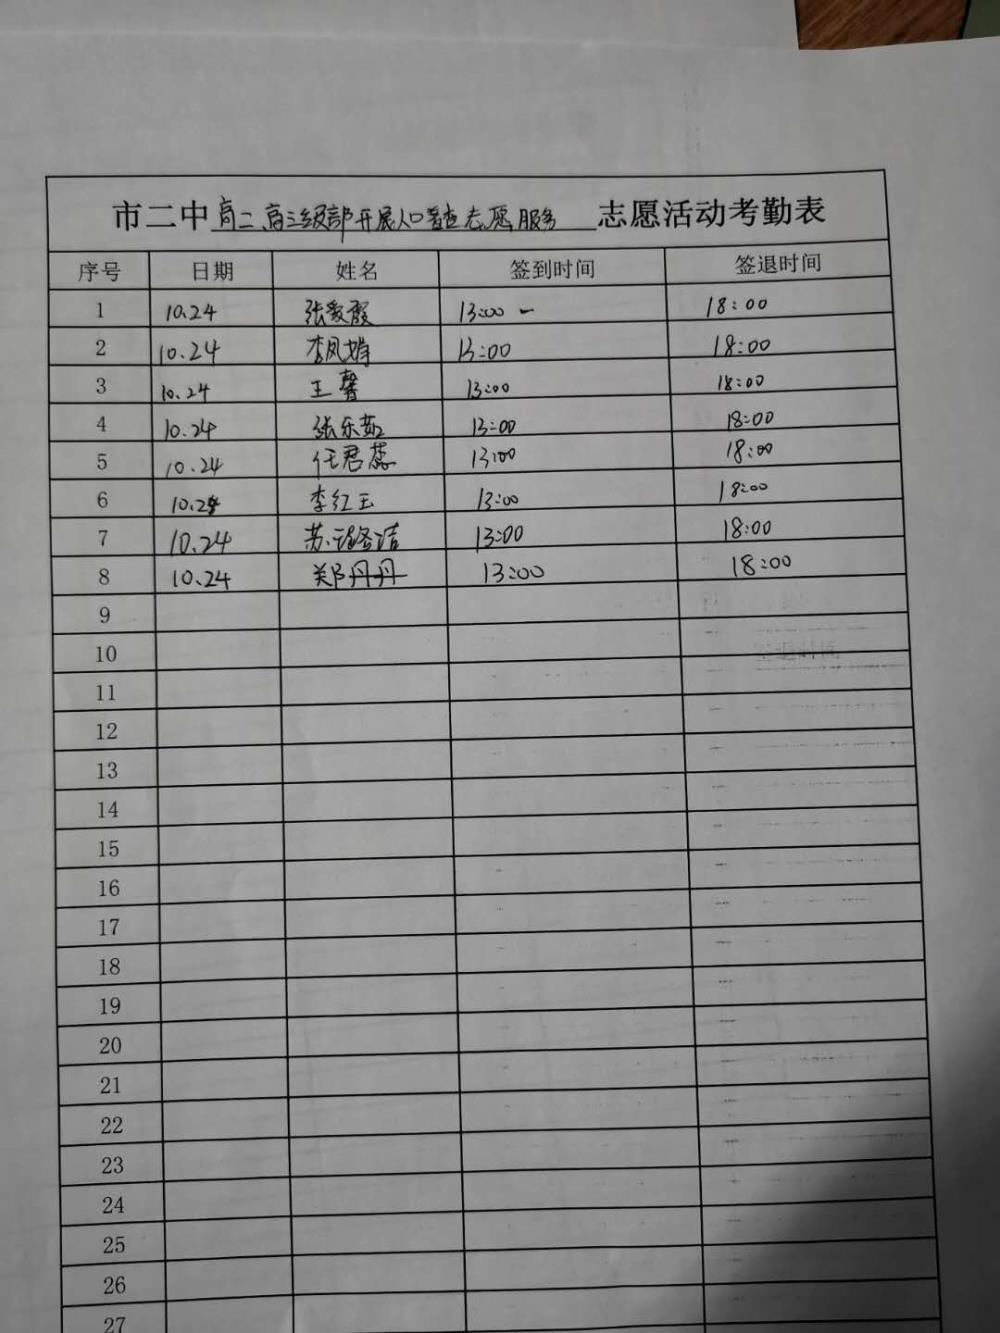 市二中高二、高三级部开展人口普查志愿服务志愿活动考勤表
序号 日期 姓名 签到时间 签退时间
1 10.24 张爱霞 13:00 - 18:00
2 10.24 李凤娟 13:00 18:00
3 10.24 王馨 13:00 18:00
4 10.24 张乐茹 13:00 18:00
5 10.24 任君蕊 13:00 18:00
6 10.24 李红玉 13:00 18:00
7 10.24 苏洁 13:00 18:00
8 10.24 郑丹丹 13:00 18:00
9
10
11
12
13
14
15
16
17
18
19
20
21
22
23
24
25
26
27